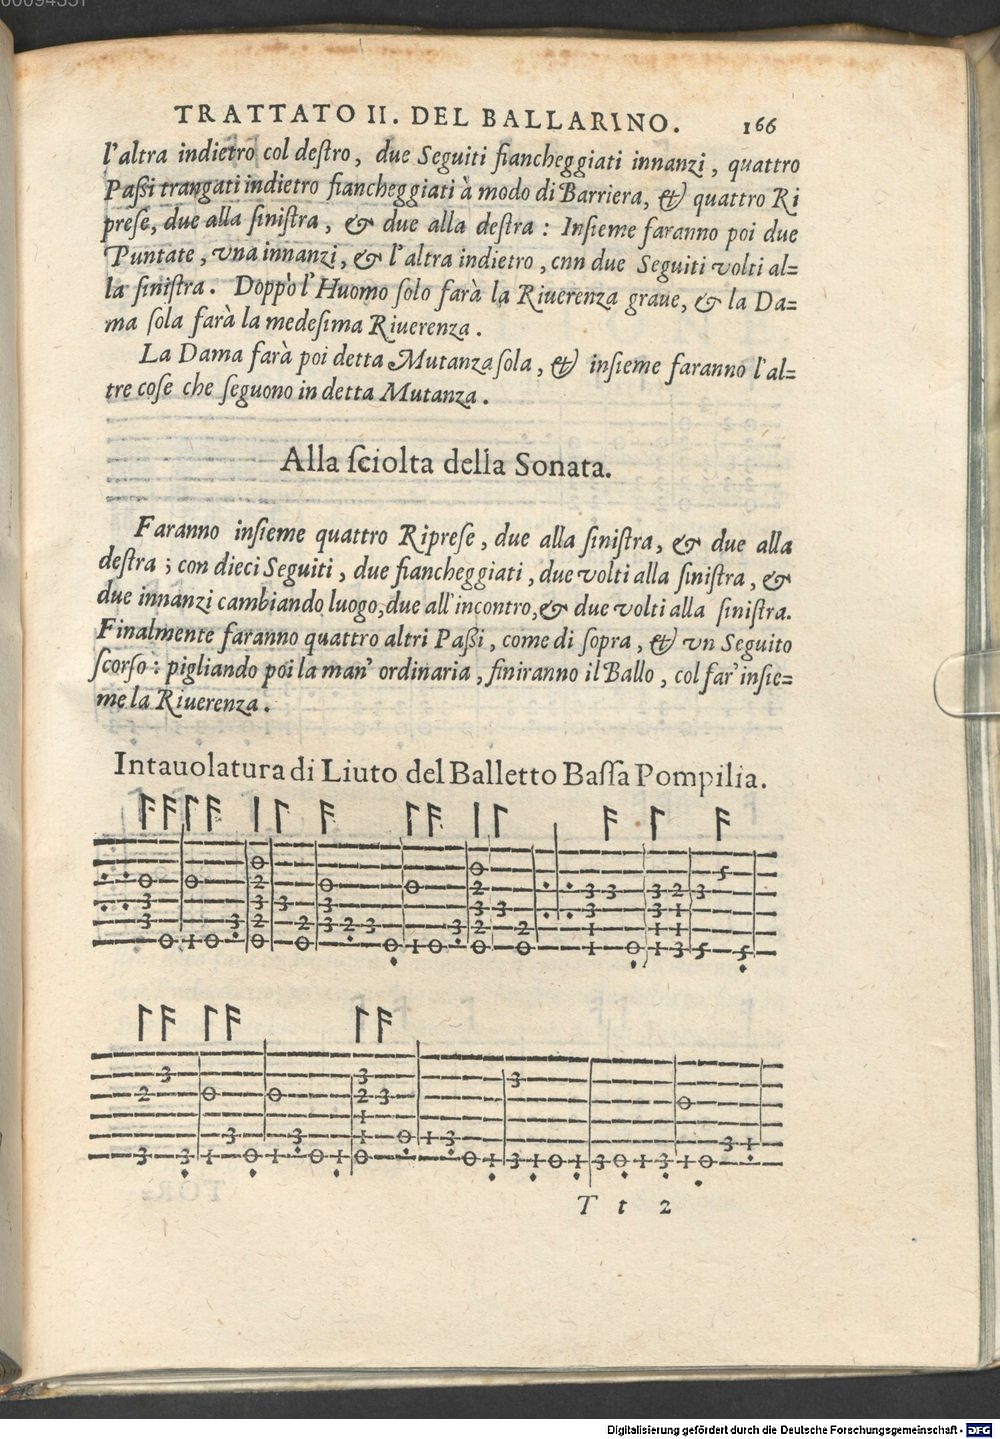 TRATTATO II. DEL BALLARINO. 166
l'altra indietro col deſtro, due Seguiti fiancheggiati innanzi, quattro
Paßi trangati indietro fiancheggiati à modo di Barriera, & quattro Ri
preſe, due alla ſiniſtra, & due alla deſtra: Inſieme faranno poi due
Puntate, vna innanzi, & l'altra indietro, cnn due Seguiti volti al=
la ſiniſtra. Doppò l'Huomo ſolo farà la Riuerenza graue, & la Da=
ma ſola farà la medeſima Riuerenza.
La Dama farà poi detta Mutanza ſola, & inſieme faranno l'al=
tre coſe che ſeguono in detta Mutanza.
Alla ſciolta della Sonata.
Faranno inſieme quattro Ripreſe, due alla ſiniſtra, & due alla
deſtra; con dieci Seguiti, due fiancheggiati, due volti alla ſiniſtra, &
due innanzi cambiando luogo, due all'incontro, & due volti alla ſiniſtra.
Finalmente faranno quattro altri Paßi, come di ſopra, & vn Seguito
ſcorſo: pigliando poi la man' ordinaria, finiranno il Ballo, col far' inſie=
me la Riuerenza.
Intauolatura di Liuto del Balletto Baſſa Pompilia.
T t 2
Digitalisierung gefördert durch die Deutsche Forschungsgemeinschaft - DFG